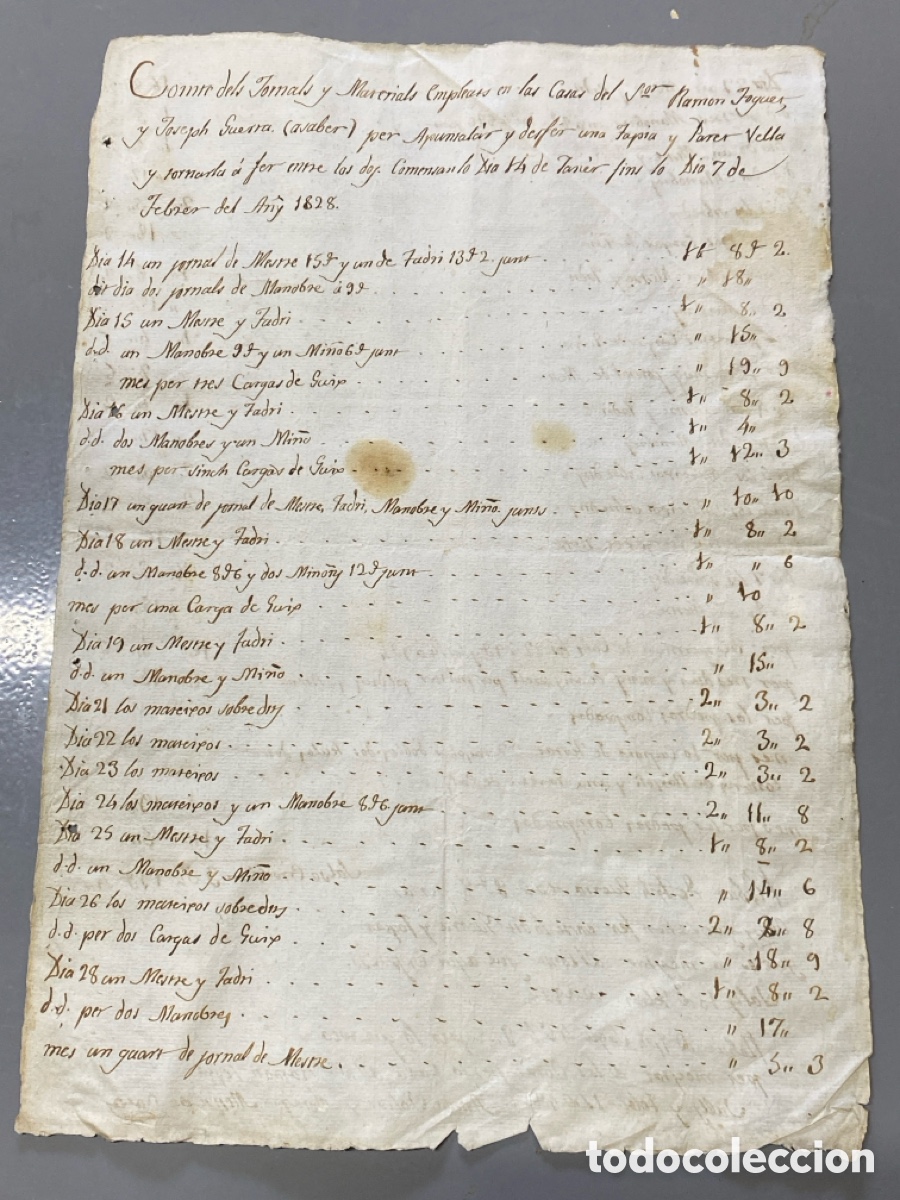 Comte dels Jornals y Materials Empleats en las Casas del Sor. Ramon Foguet,
y Joseph Guerra. (asaber) per Apuntalár y desfér una Tapia y Paret Vella
y tornarla á fer entre los dos. Comensan lo Dia 14 de Janér. fins lo Dia 7 de
Febrer del Añy 1828.
Dia 14 un jornal de Mestre 15s y un de Fadri 13s2. junt . . . 1t 8s 2.
dit dia dos jornals de Manobre á 9s . . . „ 18„
Dia 15 un Mestre y Fadri . . . 1„ 8„ 2
d.d. un Manobre 9s y un Miño 6s junt . . . „ 15„
mes per tres Cargas de Guix . . . „ 19„ 9
Dia 16 un Mestre y Fadri . . . 1„ 8„ 2
d.d. dos Manobres y un Miño . . . 1„ 4„
mes per sinch Cargas de Guix . . . 1„ 12„ 3
Dia 17 un quart de jornal de Mestre, Fadri, Manobre y Miño. junts . . . „ 10„ 10
Dia 18 un Mestre y Fadri . . . 1„ 8„ 2
d.d. un Manobre 8s6 y dos Miñons 12s junt . . . 1„ „ 6
mes per una Carga de Guix . . . „ 10
Dia 19 un Mestre y Fadri . . . 1„ 8„ 2
d.d. un Manobre y Miño . . . „ 15„
Dia 21 los mateixos sobredits . . . 2„ 3„ 2
Dia 22 los mateixos . . . 2„ 3„ 2
Dia 23 los mateixos . . . 2„ 3„ 2
Dia 24 los mateixos y un Manobre 8s6. junt . . . 2„ 11„ 8
Dia 25 un Mestre y Fadri . . . 1„ 8„ 2
d.d. un Manobre y Miño . . . „ 14„ 6
Dia 26 los mateixos sobredits . . . 2„ 2„ 8
d.d. per dos Cargas de Guix . . . „ 18„ 9
Dia 28 un Mestre y Fadri . . . 1„ 8„ 2
d.d. per dos Manobres . . . „ 17„
mes un quart de jornal de Mestre . . . „ 3„ 3
todocoleccion.net